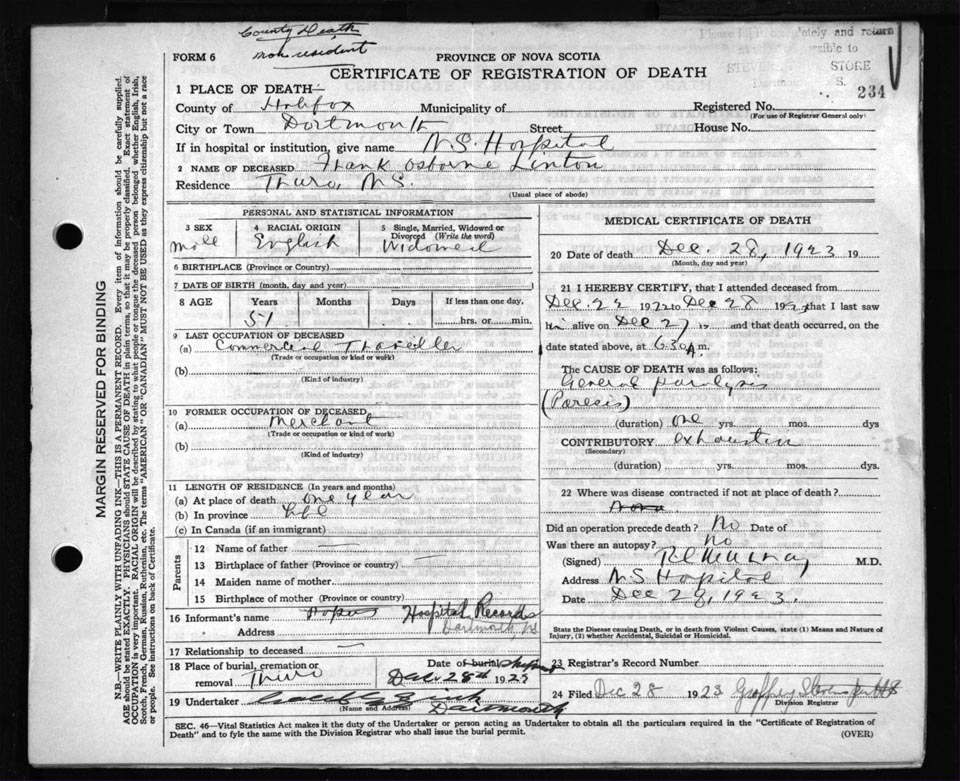 County Death
non resident
Please fill in completely and return
as possible to
STORE
S.
234
FORM 6
PROVINCE OF NOVA SCOTIA
CERTIFICATE OF REGISTRATION OF DEATH
1 PLACE OF DEATH—
County of Halifax Municipality of Registered No.
(For use of Registrar General only)
City or Town Dartmouth Street House No.
If in hospital or institution, give name N.S. Hospital
2 NAME OF DECEASED Frank Osborne Linton
Residence Truro, N.S.
(Usual place of abode)
PERSONAL AND STATISTICAL INFORMATION
3 SEX 4 RACIAL ORIGIN 5 Single, Married, Widowed or Divorced (Write the word)
Male English Widowed
6 BIRTHPLACE (Province or Country)
7 DATE OF BIRTH (month, day, and year)
8 AGE Years Months Days If less than one day,
51 hrs. or min.
9 LAST OCCUPATION OF DECEASED
(a) Commercial Traveller
(Trade or occupation or kind of work)
(b)
(Kind of industry)
10 FORMER OCCUPATION OF DECEASED
(a) Merchant
(Trade or occupation or kind of work)
(b)
(Kind of industry)
11 LENGTH OF RESIDENCE (In years and months)
(a) At place of death one year
(b) In province Life
(c) In Canada (if an immigrant)
Parents
12 Name of father —
13 Birthplace of father (Province or country) —
14 Maiden name of mother
15 Birthplace of mother (Province or country)
16 Informant's name Hospital Records
Address Dartmouth, NS
17 Relationship to deceased —
18 Place of burial, cremation or removal Truro
Date of burial Dec. 28th 1923
19 Undertaker
(Name and Address) Dartmouth
MEDICAL CERTIFICATE OF DEATH
20 Date of death Dec. 28, 1923 19
(Month, day and year)
21 I HEREBY CERTIFY, that I attended deceased from
Dec 22 192 to Dec 28 192, that I last saw
him alive on Dec 27 19 and that death occurred, on the
date stated above, at 6.30 A.m.
The CAUSE OF DEATH was as follows:
General paralysis
(Paresis)
(duration) one yrs. mos. dys
CONTRIBUTORY exhaustion
(Secondary)
(duration) yrs. mos. dys.
22 Where was disease contracted if not at place of death?
Did an operation precede death? No Date of
Was there an autopsy? No
(Signed) M.D.
Address N S Hospital
Date Dec 28, 1923.
State the Disease causing Death, or in death from Violent Causes, state (1) Means and Nature of
Injury, (2) whether Accidental, Suicidal or Homicidal.
23 Registrar's Record Number
24 Filed Dec 28 1923
Division Registrar
SEC. 46—Vital Statistics Act makes it the duty of the Undertaker or person acting as Undertaker to obtain all the particulars required in the "Certificate of Registration of
Death" and to fyle the same with the Division Registrar who shall issue the burial permit. (OVER)
MARGIN RESERVED FOR BINDING
N.B.—WRITE PLAINLY WITH UNFADING INK—THIS IS A PERMANENT RECORD. Every item of information should be carefully supplied.
AGE should be stated EXACTLY. PHYSICIANS should STATE CAUSE OF DEATH in plain terms, so that it may be properly classified. Exact statement of
OCCUPATION is very important. RACIAL ORIGIN will be described by stating to what people or tongue the deceased person belonged whether English, Irish,
Scotch, French, German, Russian, Ruthenian, etc. The terms "AMERICAN" OR "CANADIAN" MUST NOT BE USED as they express citizenship but not a race
or people. See instructions on back of Certificate.